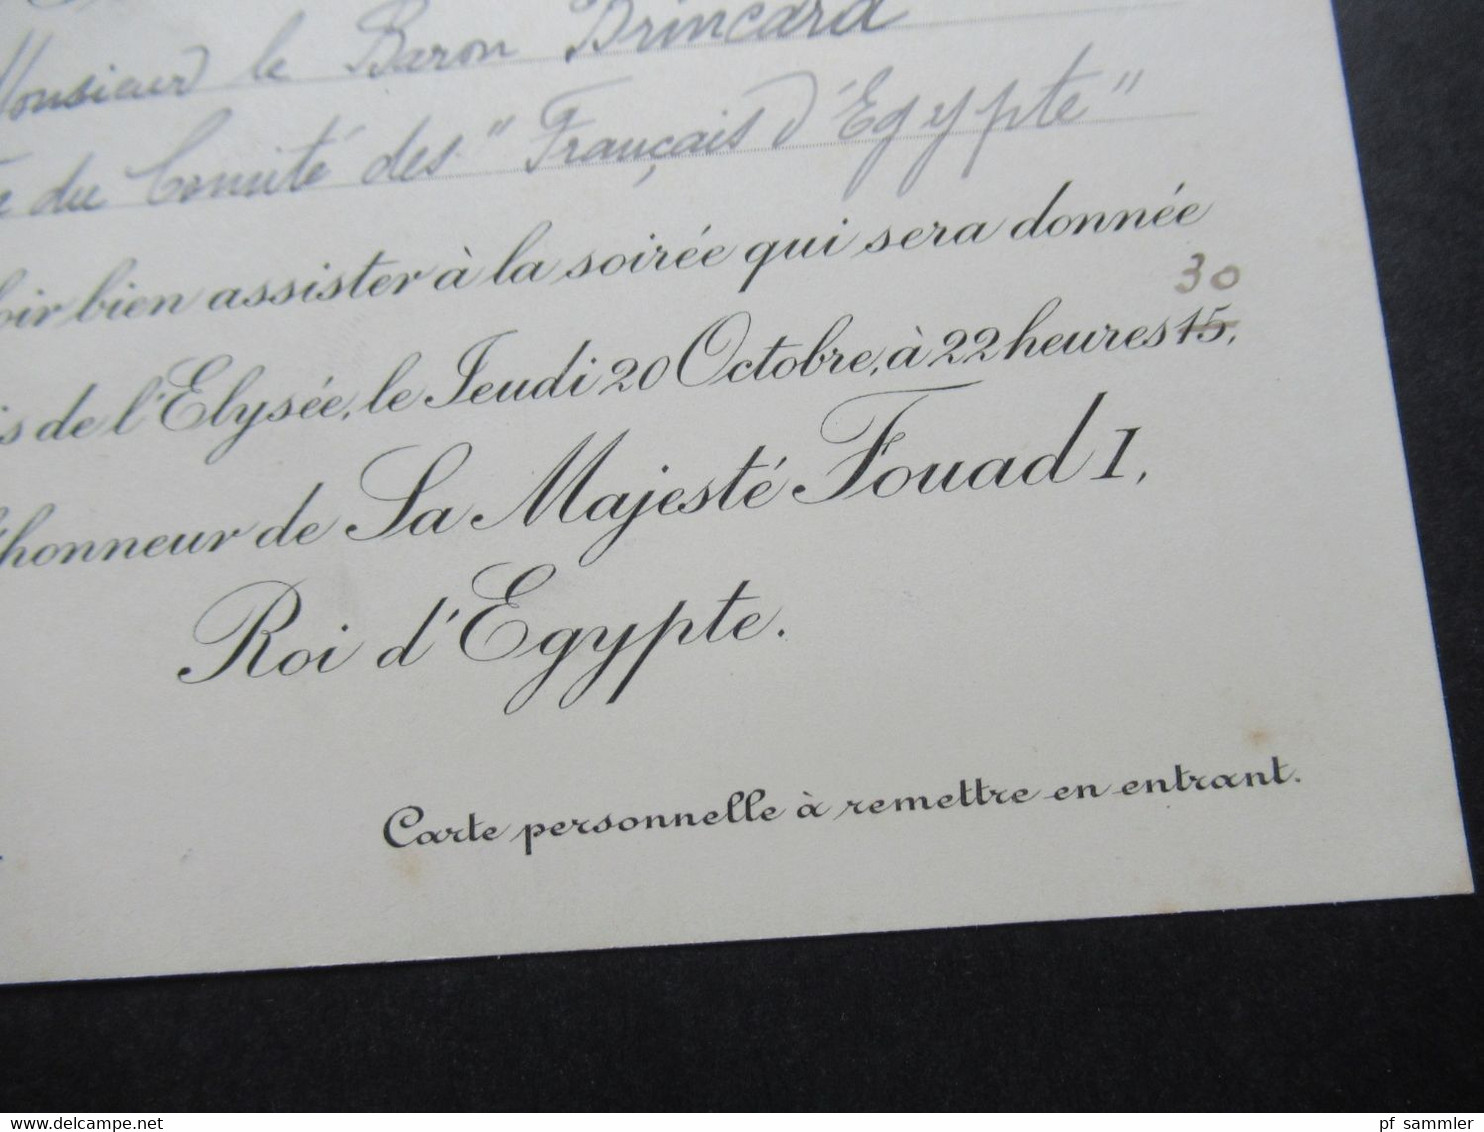 Monsieur le Baron Brincard
du Comité des "Français d'Egypte"
bien assister à la soirée qui sera donnée
30
de l'Elysée, le Jeudi 20 Octobre, à 22 heures 15,
honneur de Sa Majesté Fouad I,
Roi d'Egypte.
Carte personnelle à remettre en entrant.
pf_sammler